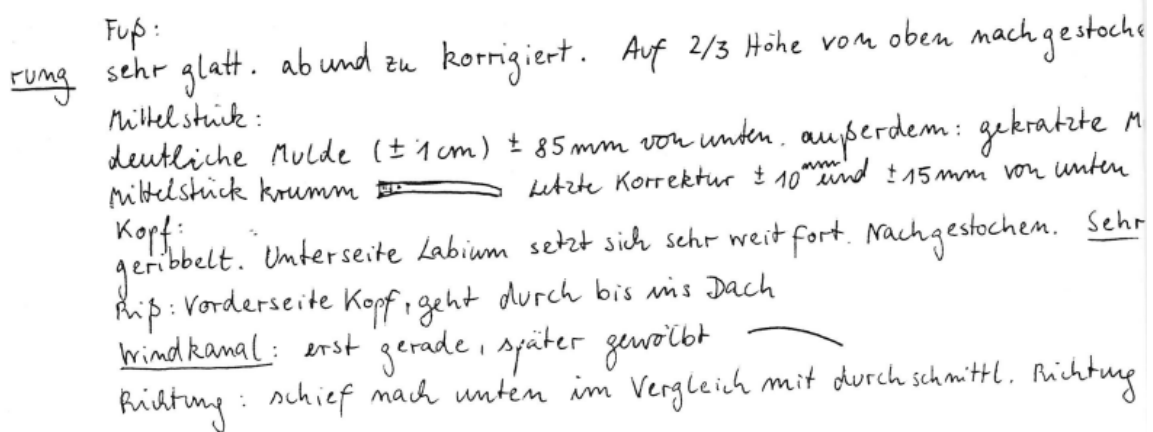 Fuß:
rung sehr glatt. ab und zu korrigiert. Auf 2/3 Höhe von oben nachgestoche
Mittelstück:
deutliche Mulde (± 1 cm) ± 85 mm von unten. außerdem: gekratzte M
Mittelstück krumm Letzte Korrektur ± 10 mm und ± 15 mm von unten
Kopf:
geribbelt. Unterseite Labium setzt sich sehr weit fort. Nachgestochen. Sehr
Riß: Vorderseite Kopf, geht durch bis ins Dach
Windkanal: erst gerade, später gewölbt
Richtung: schief nach unten im Vergleich mit durchschnittl. Richtung